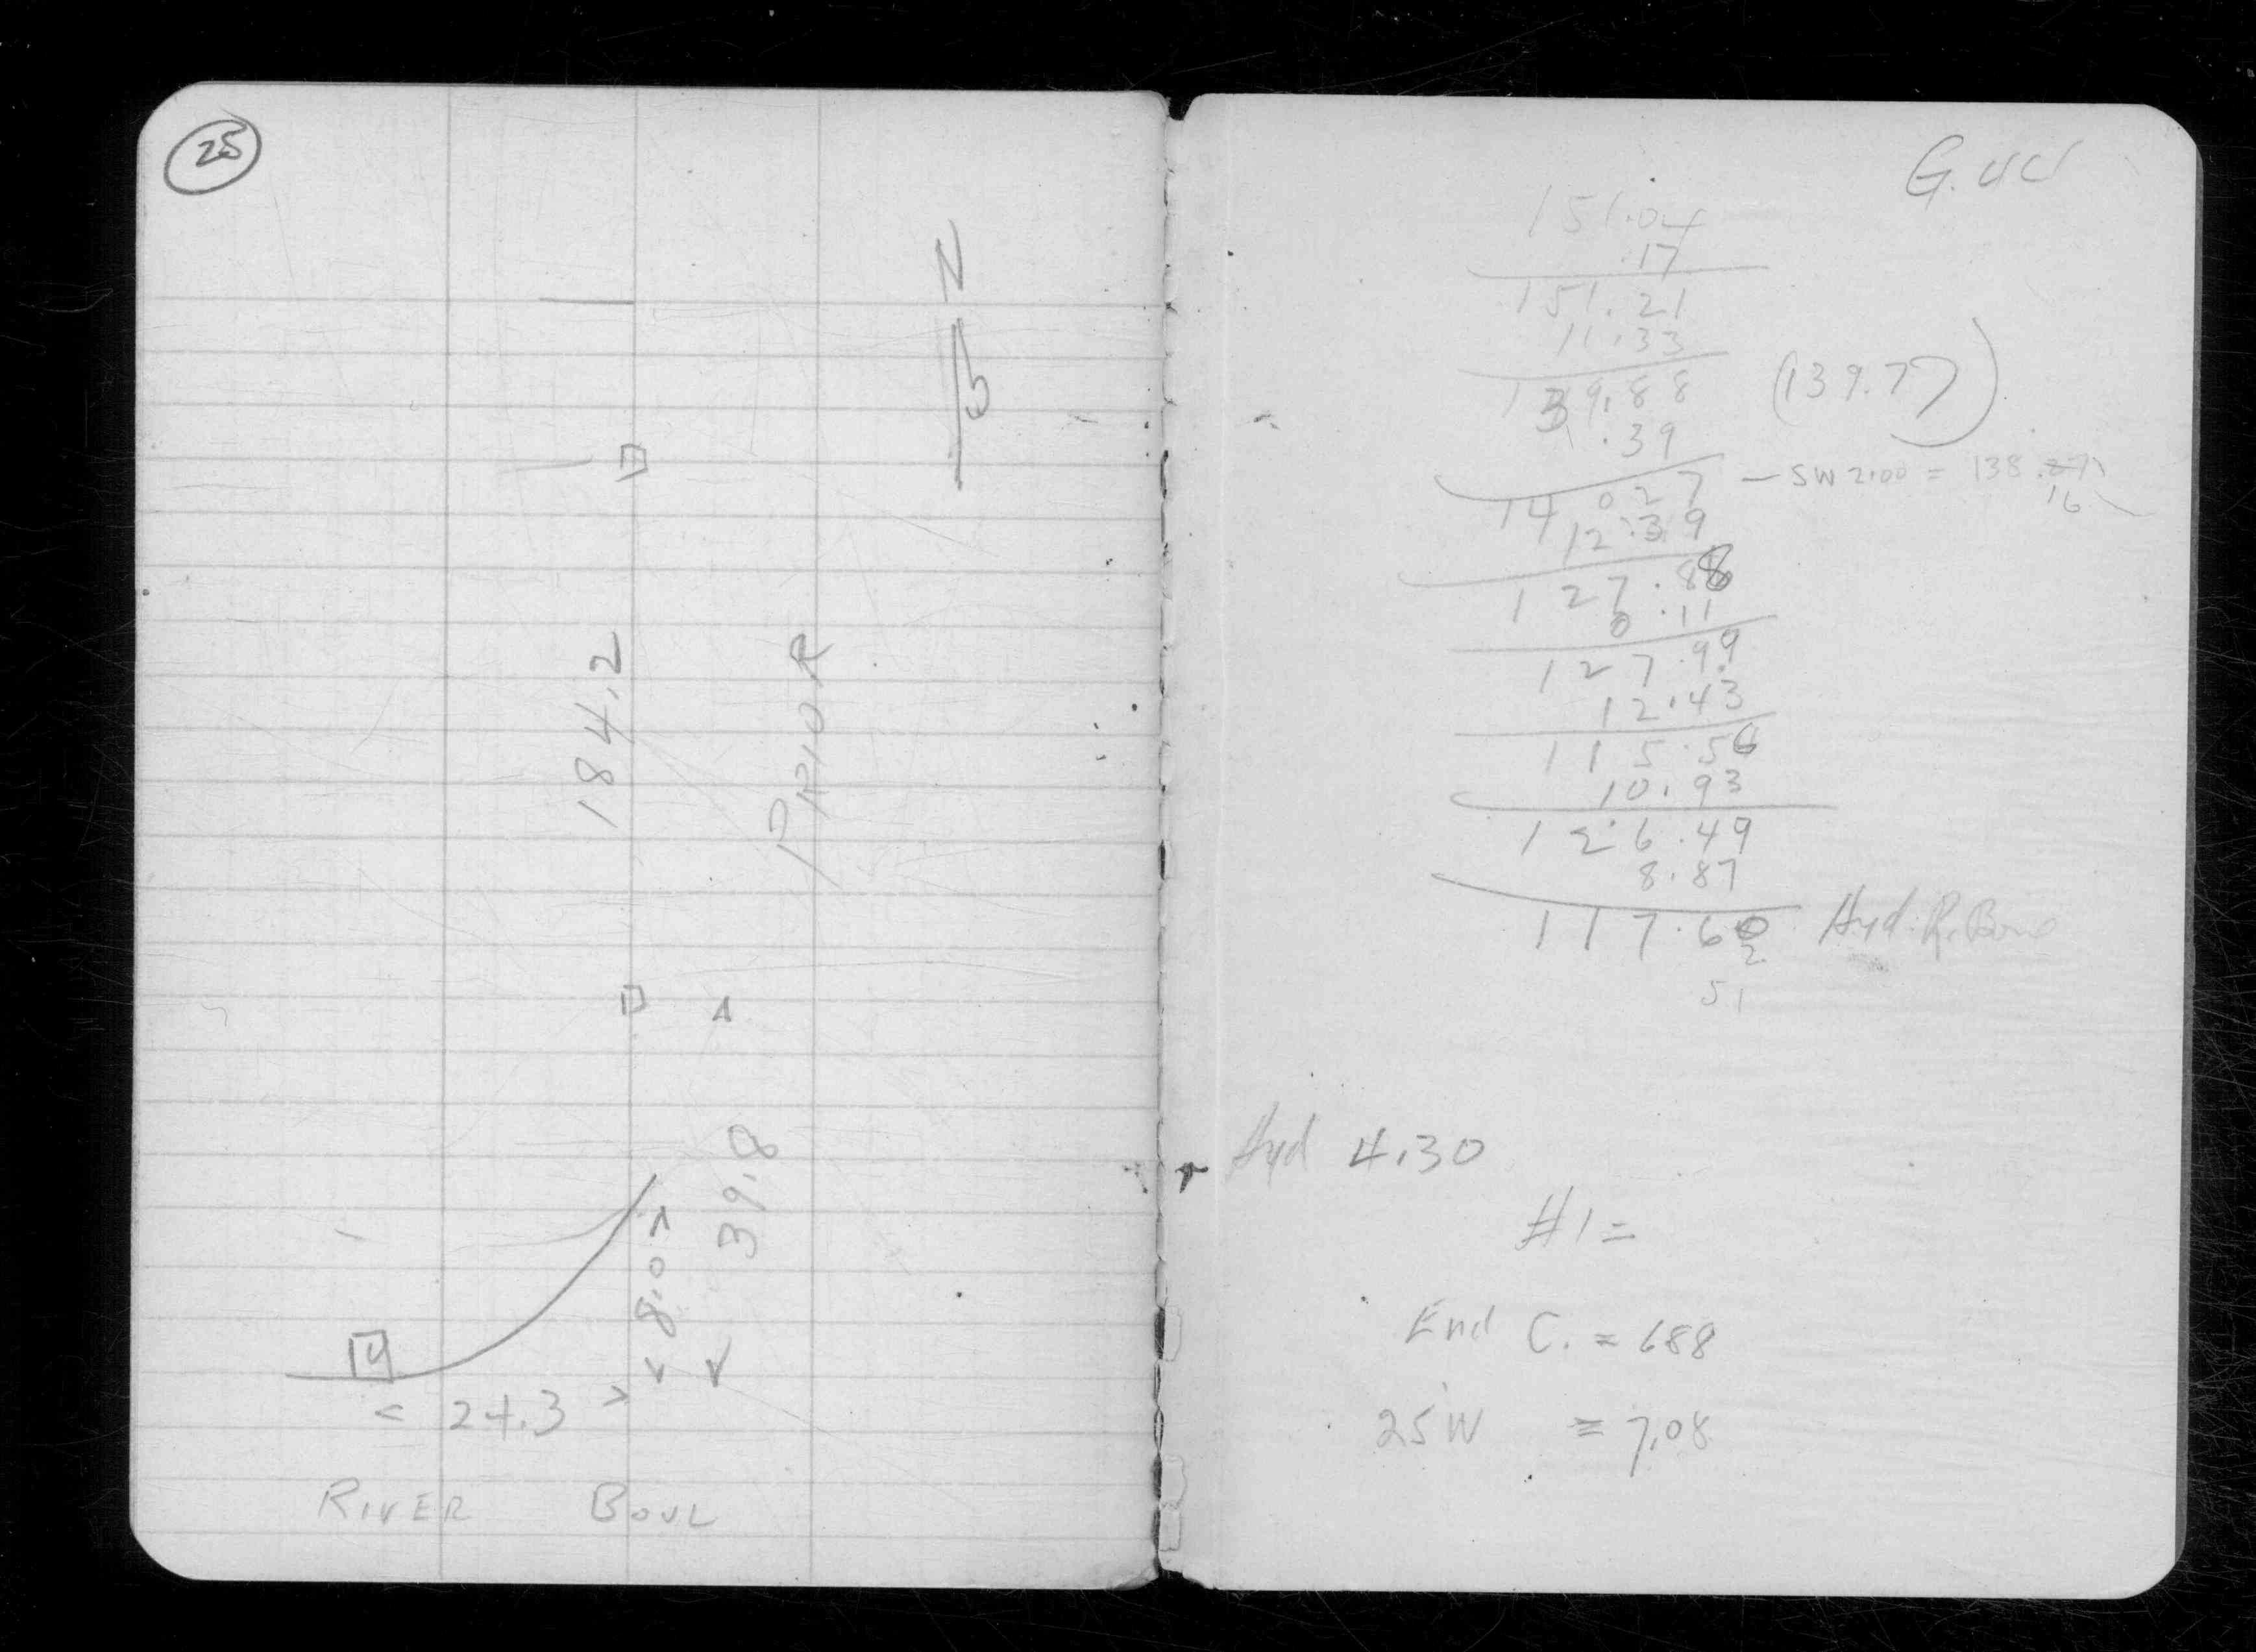 25
N
184.2
PRIOR
39.8
8.0
14
24.3
RIVER BOUL
151.04
.17
151.21
11.33
139.88 (139.77)
.39
14 0 27 — SW 2.00 = 138.27
16
12.39
127.88
0.11
127.99
12.43
115.56
10.93
126.49
8.87
117.60 Hyd. R.
2
51
Hyd 4.30
#1=
End C. = 688
25W = 7.08